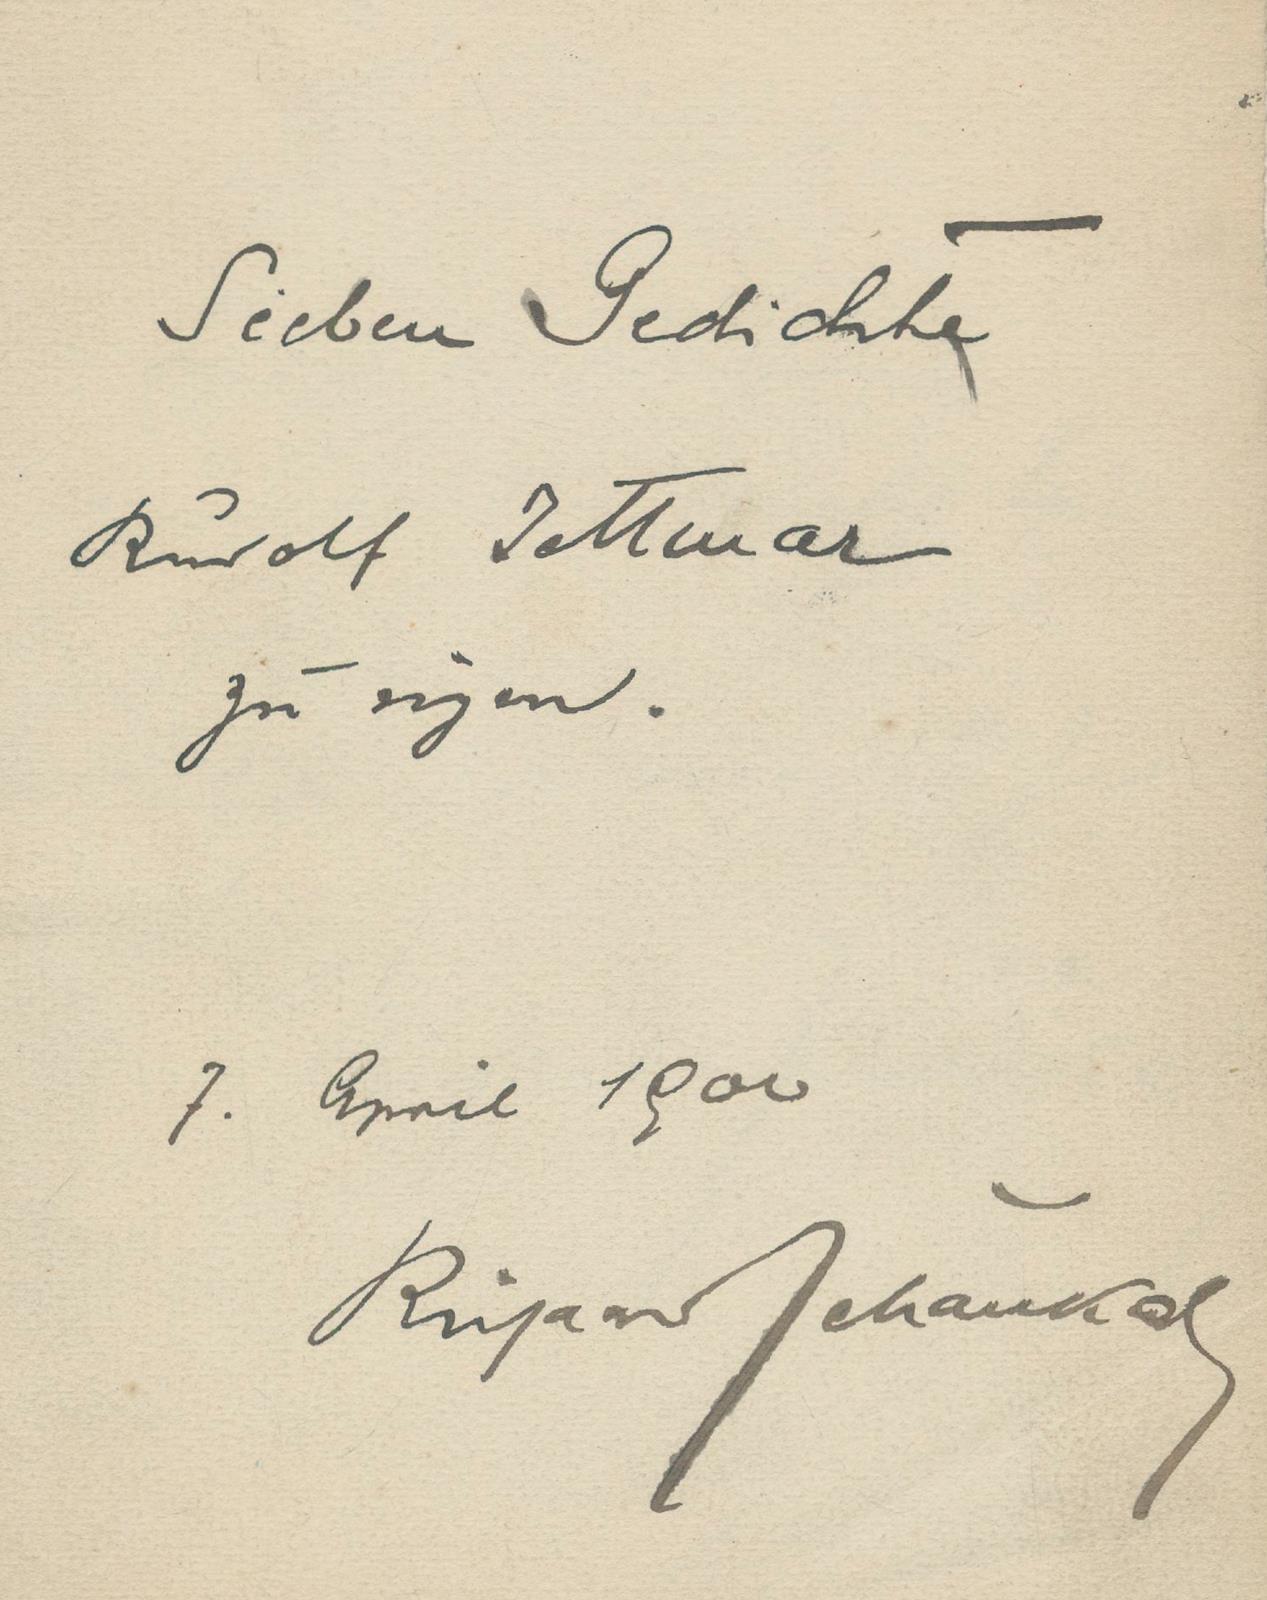 Sieben Gedichte
Rudolf Jettmar
zu eigen.
7. April 1900
Richard Schaukal